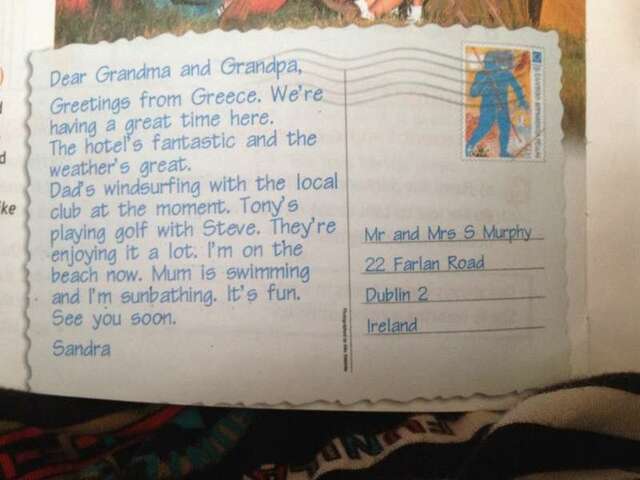 Dear Grandma and Grandpa,
Greetings from Greece. We're
having a great time here.
The hotel's fantastic and the
weather's great.
Dad's windsurfing with the local
club at the moment. Tony's
playing golf with Steve. They're
enjoying it a lot. I'm on the
beach now. Mum is swimming
and I'm sunbathing. It's fun.
See you soon.
Sandra
Mr and Mrs S Murphy
22 Farlan Road
Dublin 2
Ireland
d
d
ike